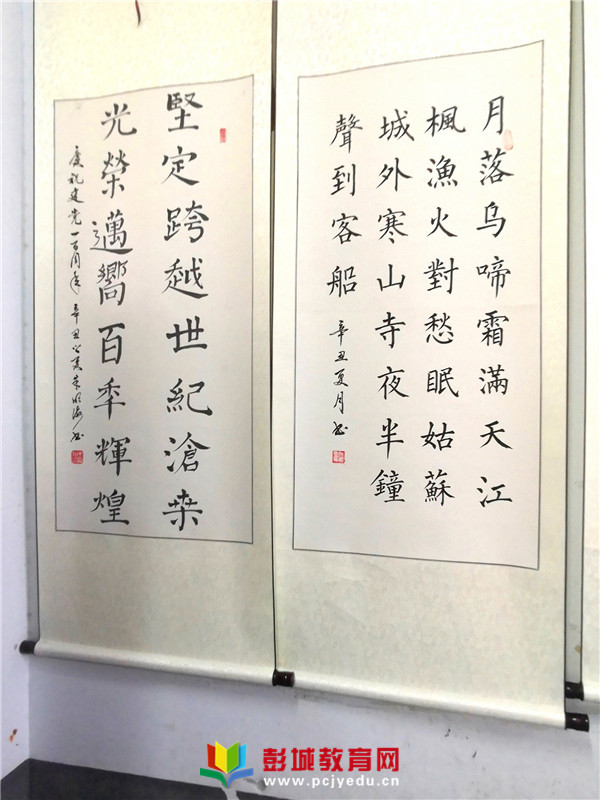 月落乌啼霜滿天江
楓漁火對愁眠姑蘇
城外寒山寺夜半鐘
聲到客船
辛丑夏月书
堅定跨越世紀滄桒
光榮邁嚮百秊輝煌
庆祝建党一百周年 辛丑之夏朱明海书
彭城教育网
www.pcjyedu.cn